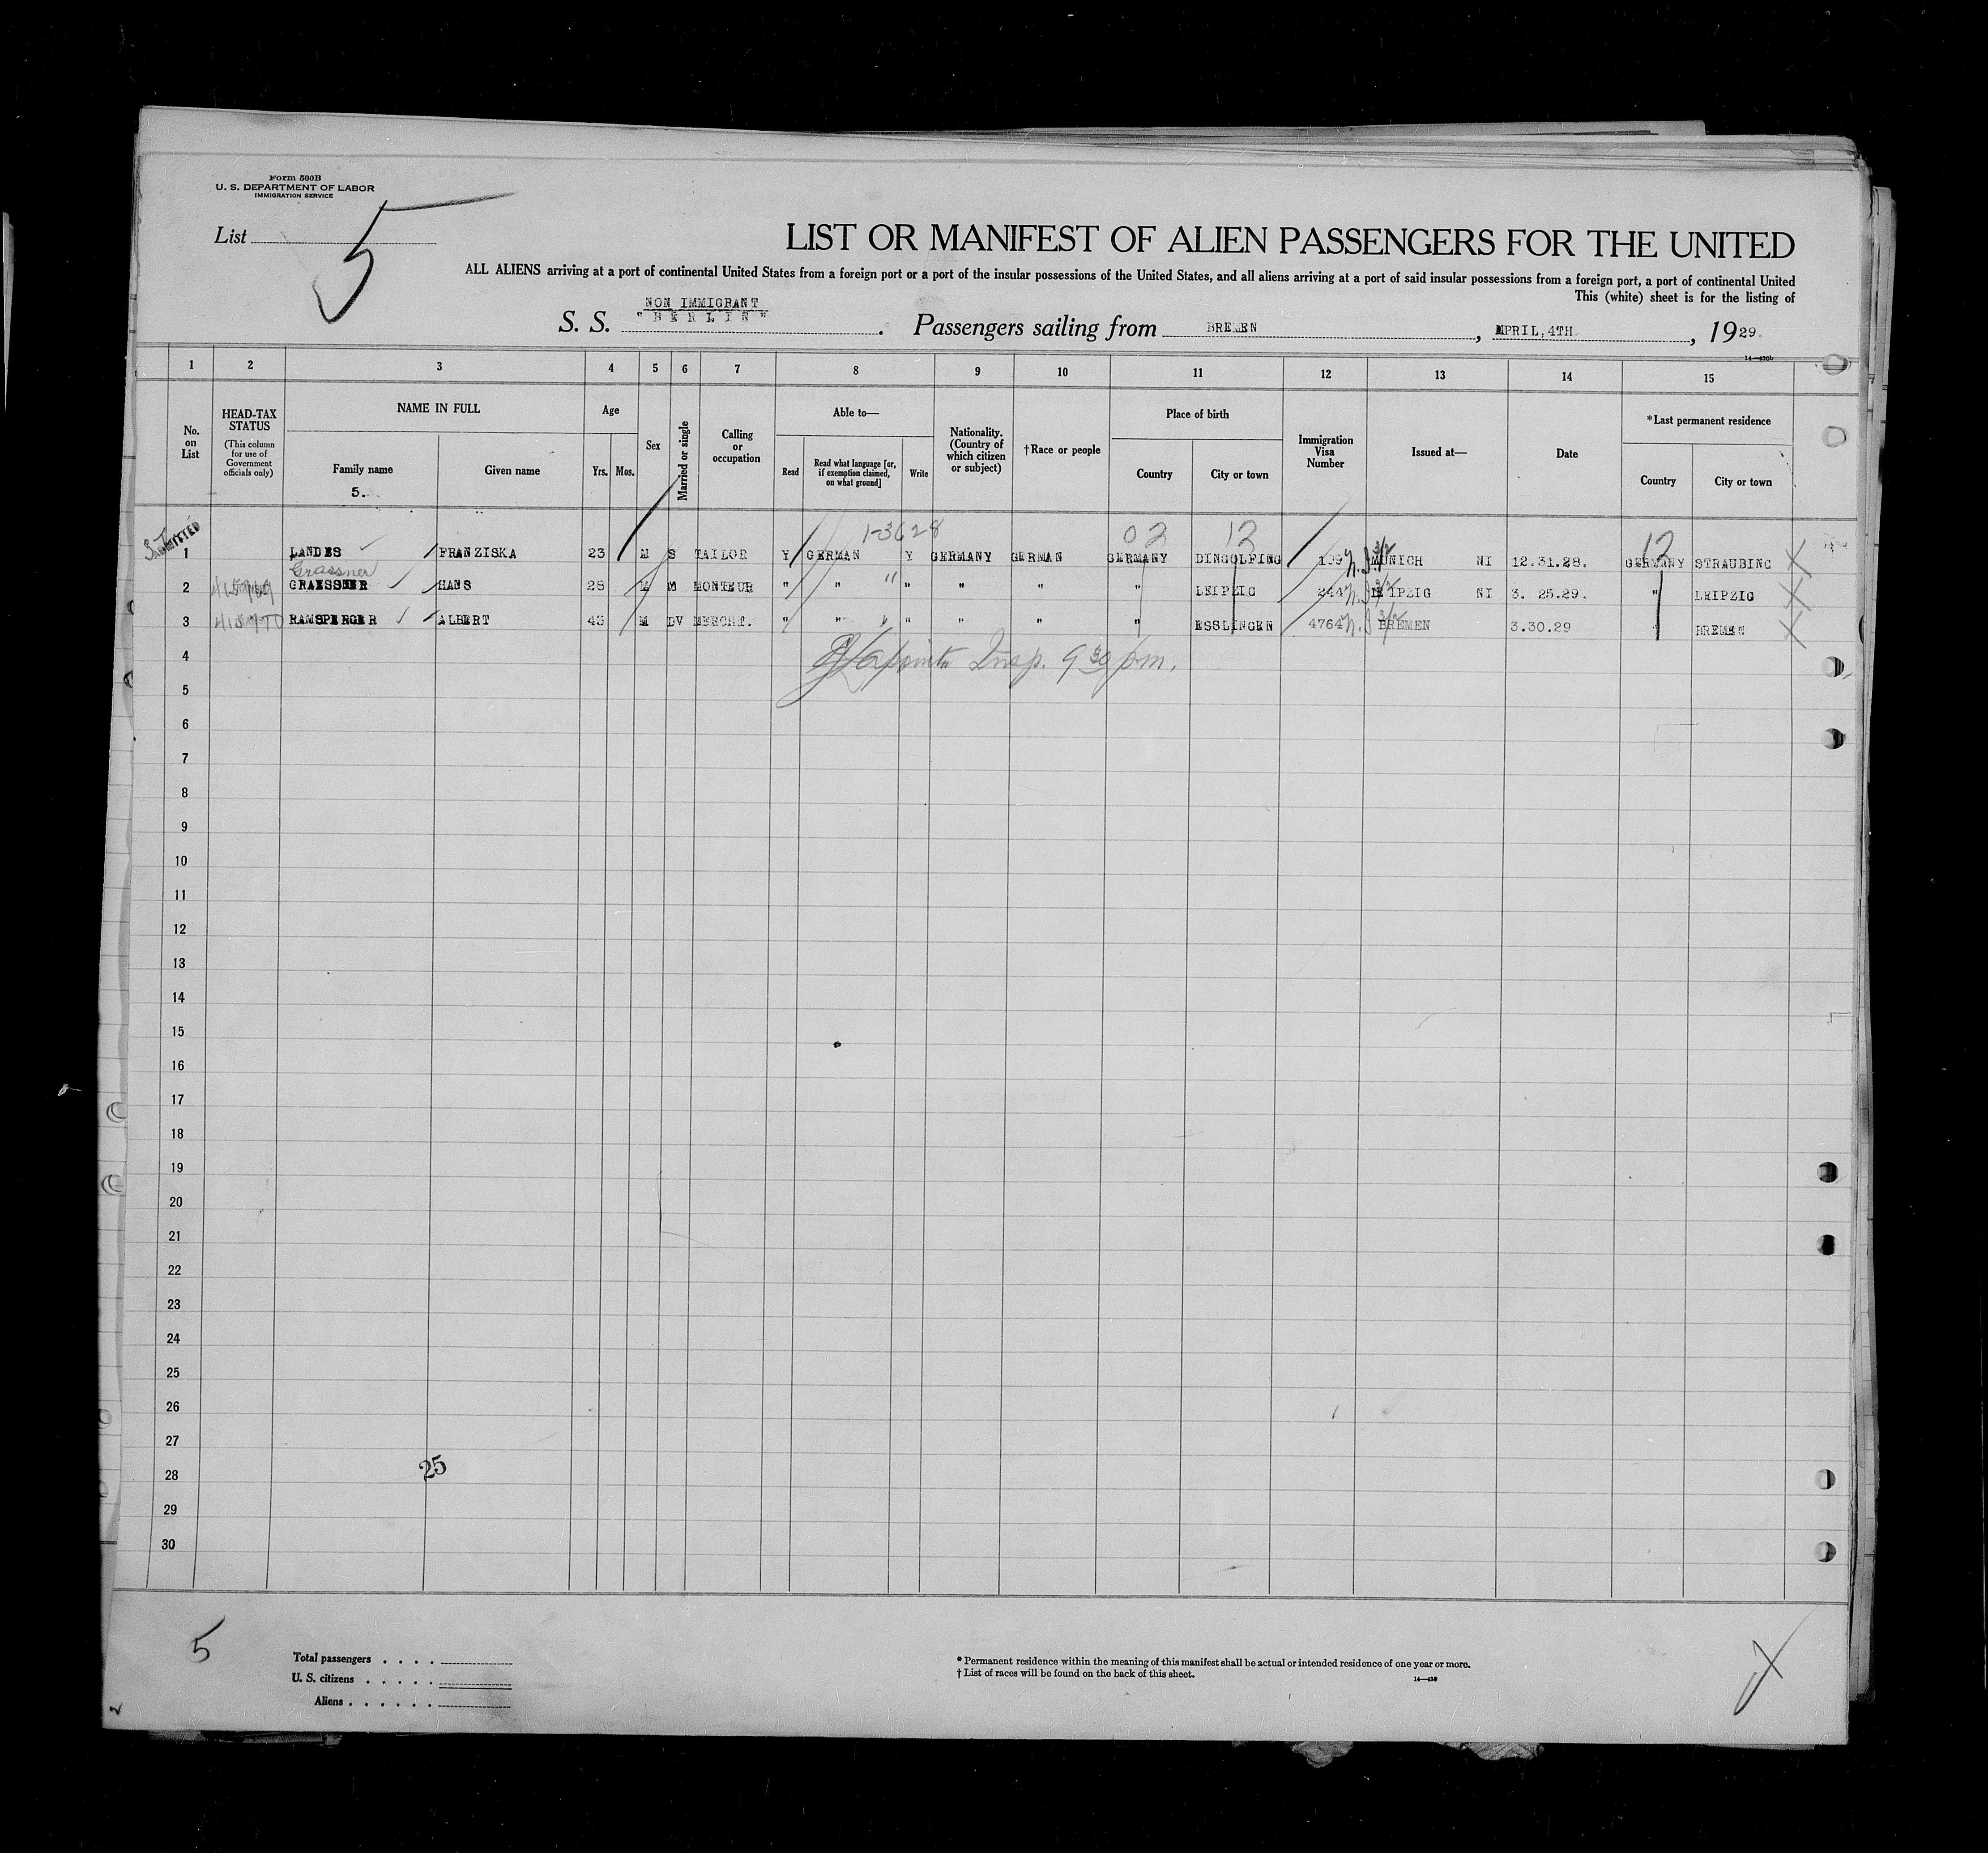 Form 500B
U. S. DEPARTMENT OF LABOR
IMMIGRATION SERVICE
List 5
LIST OR MANIFEST OF ALIEN PASSENGERS FOR THE UNITED
ALL ALIENS arriving at a port of continental United States from a foreign port or a port of the insular possessions of the United States, and all aliens arriving at a port of said insular possessions from a foreign port, a port of continental United
This (white) sheet is for the listing of
NON IMMIGRANT
S. S. "BERLIN". Passengers sailing from BREMEN, APRIL, 4TH., 1929.
14—430b
1 2 3 4 5 6 7 8 9 10 11 12 13 14 15
No. on List
HEAD-TAX STATUS
(This column for use of Government officials only)
NAME IN FULL
Family name
Given name
5.
Age
Yrs. Mos.
Sex
Married or single
Calling or occupation
Able to—
Read
Read what language [or, if exemption claimed, on what ground]
Write
Nationality. (Country of which citizen or subject)
†Race or people
Place of birth
Country
City or town
Immigration Visa Number
Issued at—
Date
*Last permanent residence
Country
City or town
1-3628 02 12 12
ADMITTED
1 LANDES FRANZISKA 23 M S TAILOR Y GERMAN Y GERMANY GERMAN GERMANY DINGOLFING 199 MUNICH NI 12.31.28. GERMANY STRAUBING
Grassner
2 GRAESSNER HANS 28 M M MONTEUR " " " " " " LEIPZIG 244 LEIPZIG NI 3. 25.29. " LEIPZIG
3 RAMSPERGER ALBERT 43 M DV MERCHT. " " " " " " ESSLINGEN 4764 BREMEN 3.30.29 " BREMEN
4 Insp. 9 30 pm.
5
6
7
8
9
10
11
12
13
14
15
16
17
18
19
20
21
22
23
24
25
26
27
28 25
29
30
5
Total passengers . . . .
U. S. citizens . . . . .
Aliens . . . . . .
* Permanent residence within the meaning of this manifest shall be actual or intended residence of one year or more.
† List of races will be found on the back of this sheet.
14—430